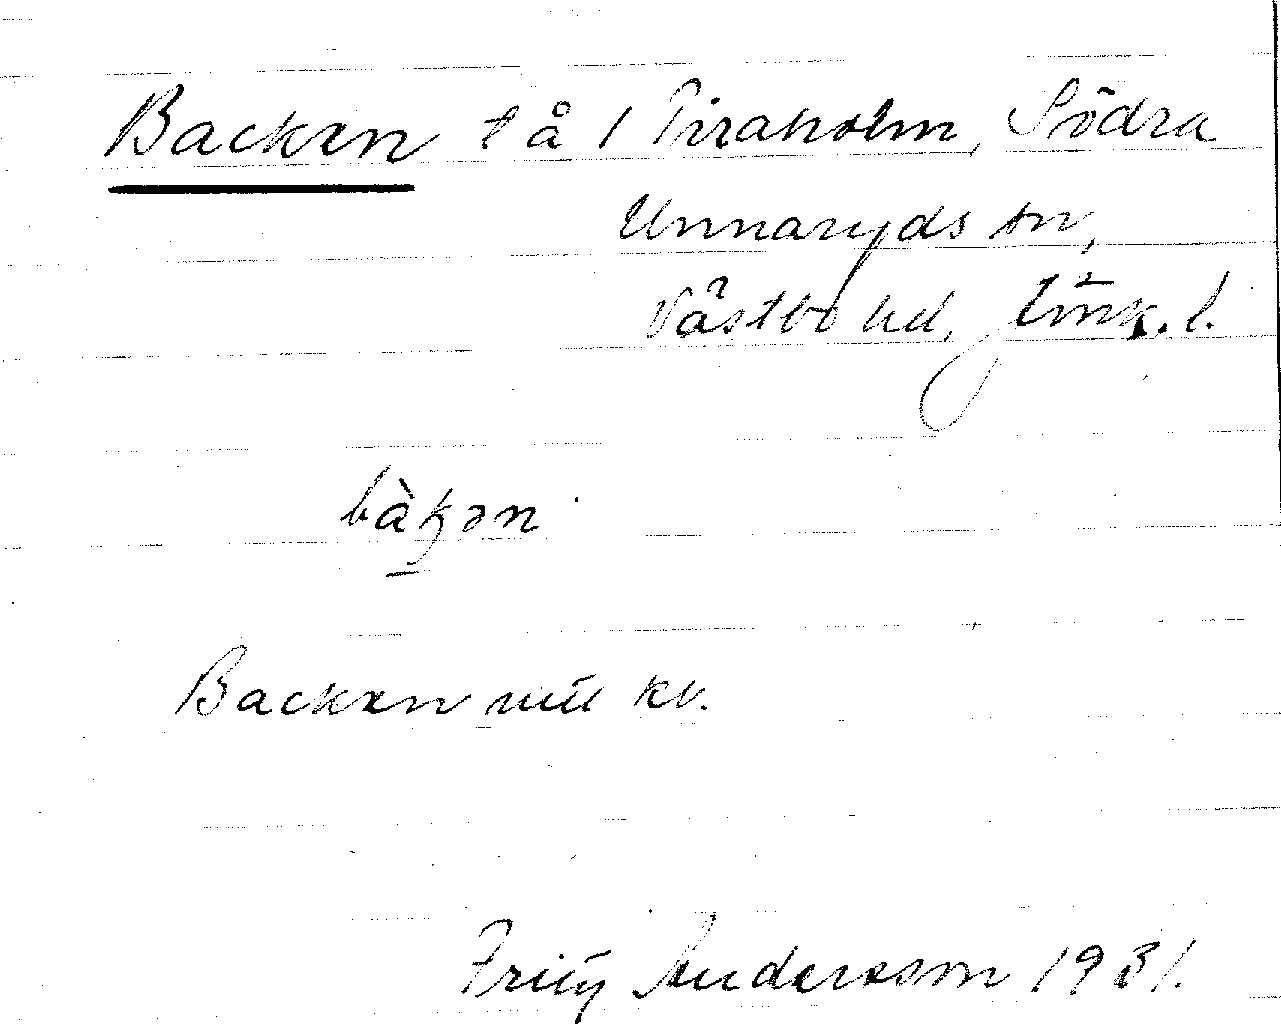 Backen t å 1 Piraholm, Södra
Unnaryds sn,
Västbo hd, Jönk. l.
bàkən
Backen intill kv.
Fritz Andersson 1931.